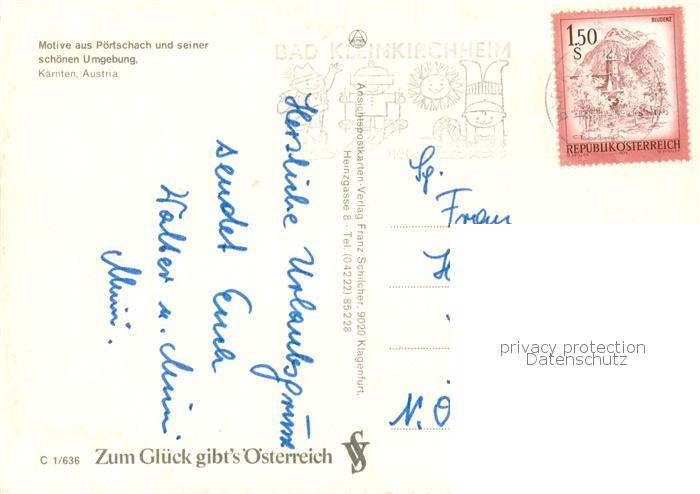 Motive aus Pörtschach und seiner
schönen Umgebung,
Kärnten, Austria
BAD KLEINKIRCHHEIM
BLUDENZ
1.50
S
REPUBLIK ÖSTERREICH
Herzliche Urlaubsgrüsse
sendet Euch
Walter u. Mimi
Mimi.
Ansichtspostkarten-Verlag Franz Schilcher, 9020 Klagenfurt,
Heinzgasse 8 · Tel. (0 42 22) 85 2 28
Sg.
Frau
N. Ö
privacy protection
Datenschutz
C 1/636 Zum Glück gibt's Österreich